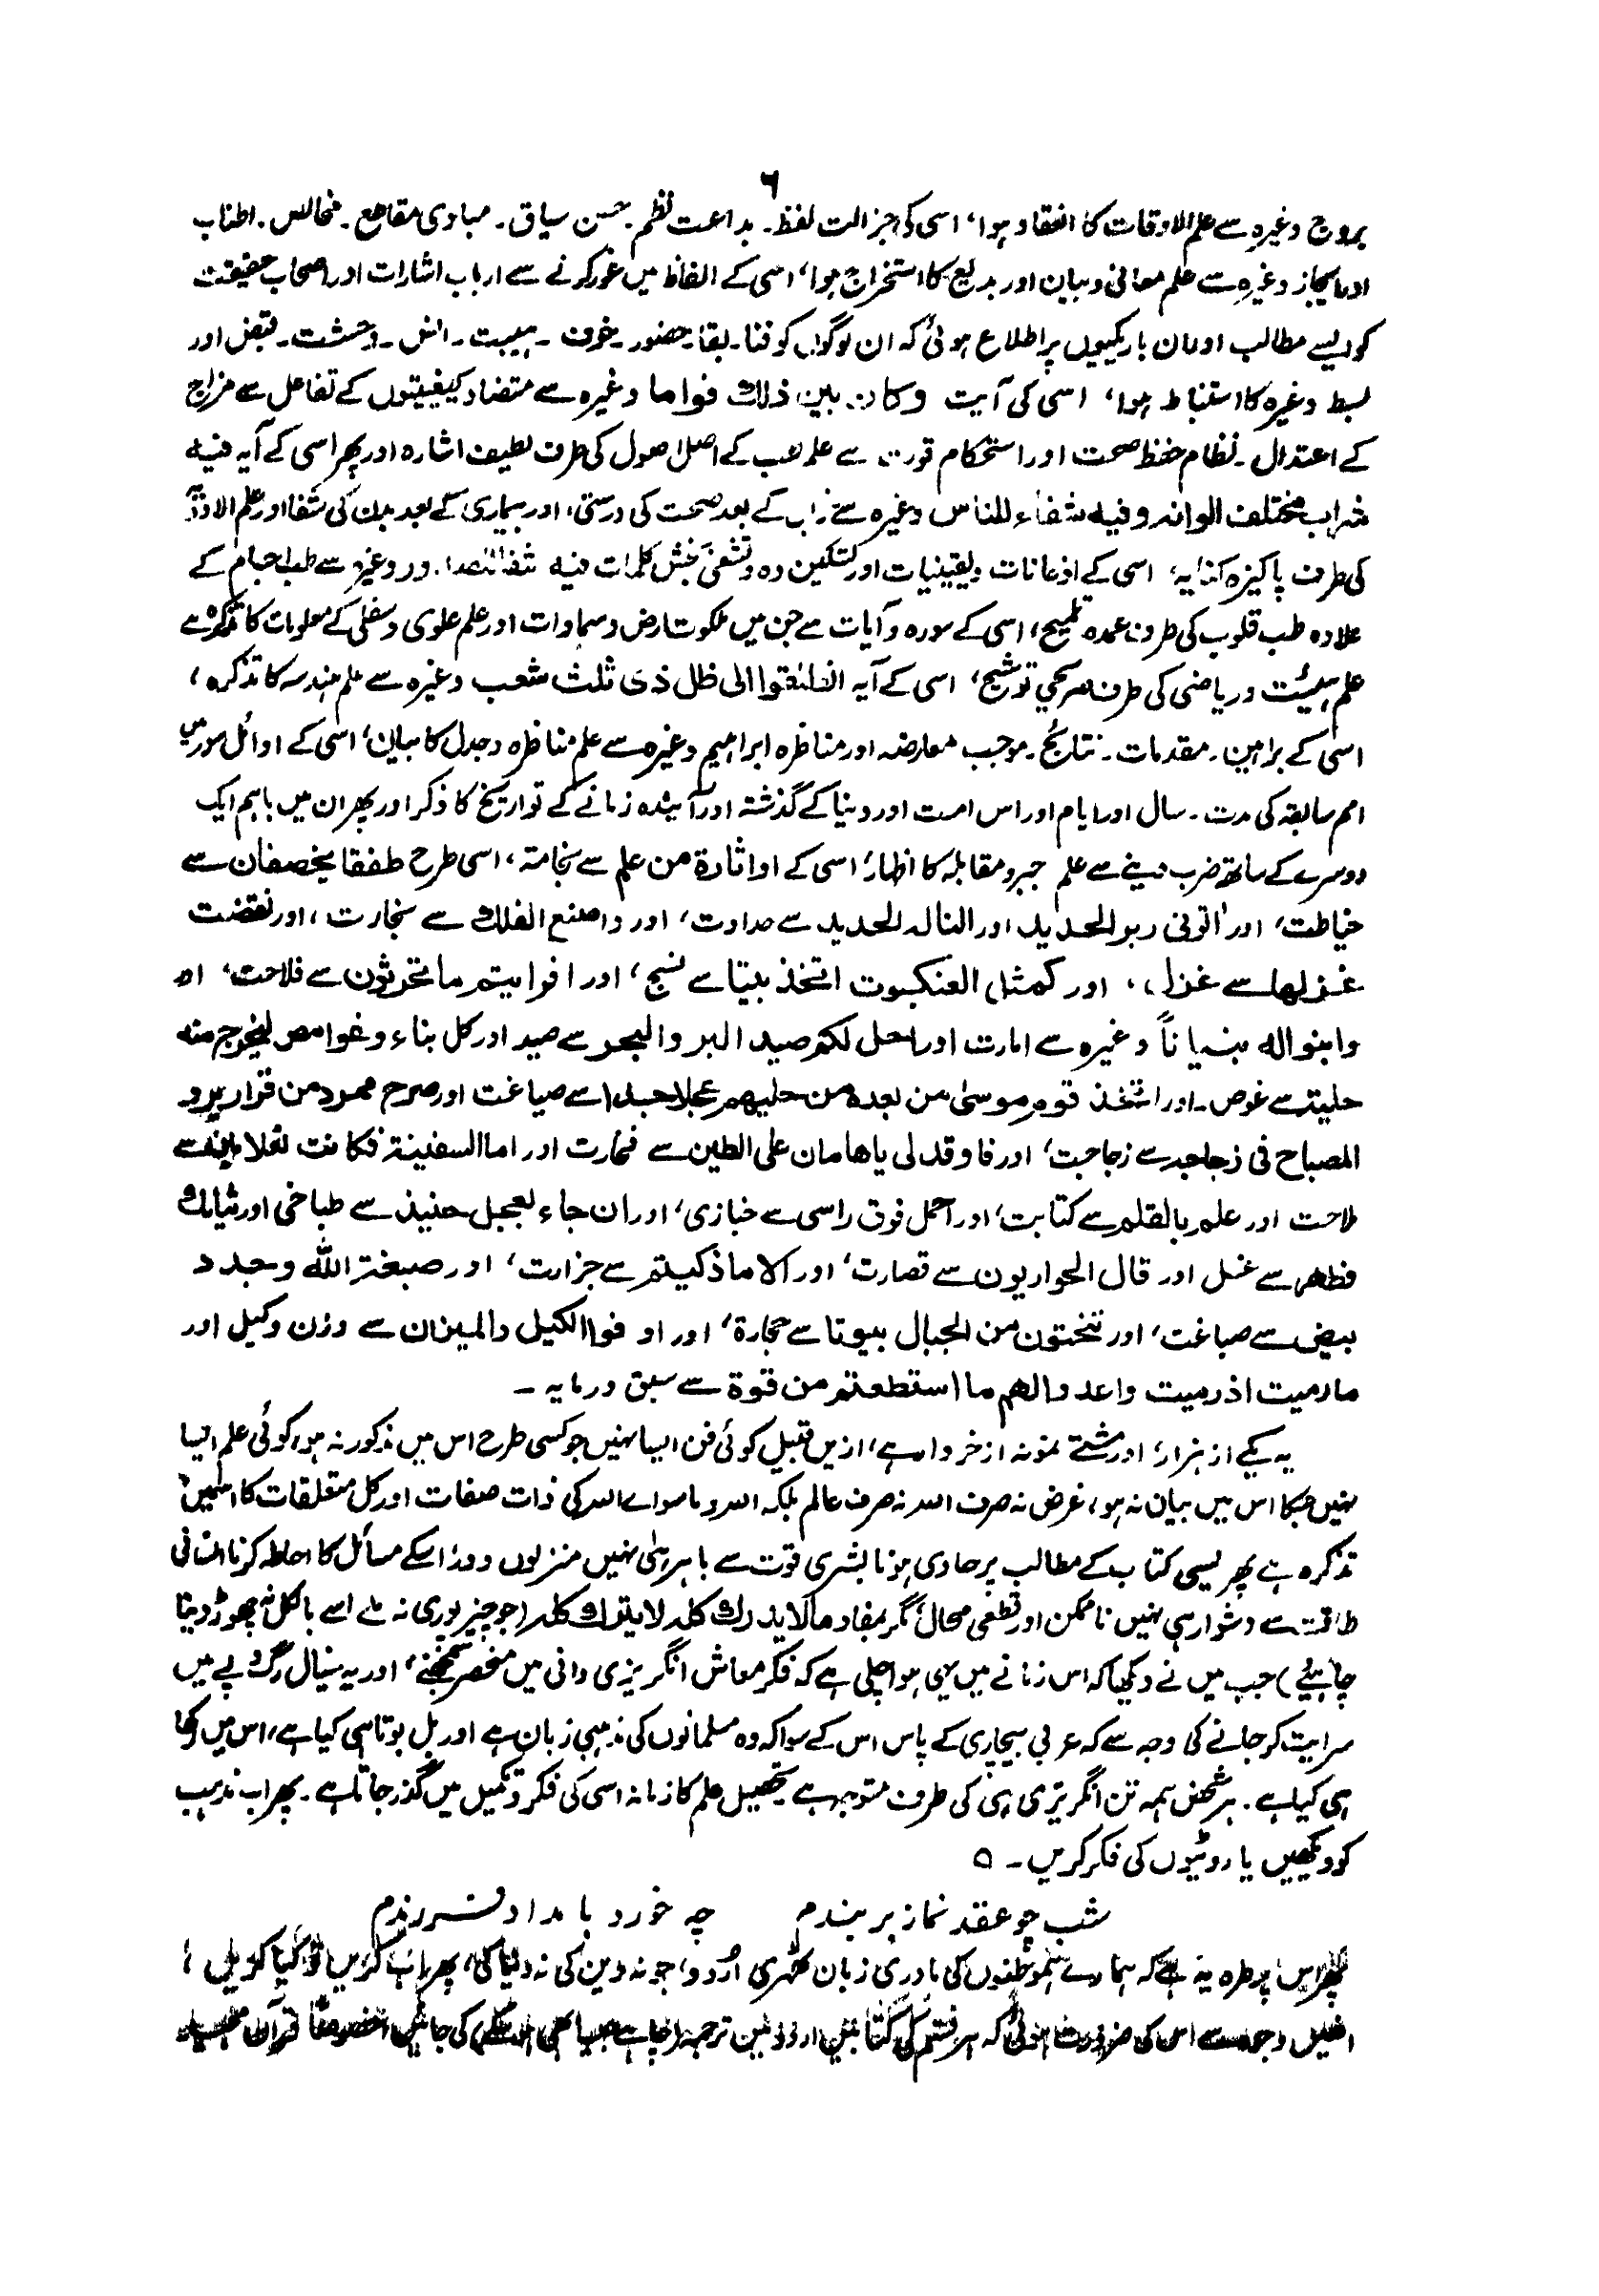 ۶
بروج وغیرہ سے علم الاوقات کا انعقاد ہوا، اسی کی جزالت لفظ۔ بداعت نظم۔ حسن سیاق۔ مبادی مقاطع۔ مخالص۔ اطناب
اور ایجاز وغیرہ سے علم معانی و بیان اور بدیع کا استخراج ہوا، اسی کے الفاظ میں غور کرنے سے ارباب اشارات اور اصحاب حقیقت
کو ایسے مطالب اور ان باریکیوں پر اطلاع ہوئی کہ ان لوگوں کو فنا۔ بقا۔ حضور۔ خوف۔ ہیبت۔ انس۔ وحشت۔ قبض اور
بسط وغیرہ کا استنباط ہوا، اسی کی آیت وکان بین ذلك قواما وغیرہ سے متضاد کیفیتوں کے تفاعل سے مزاج
کے اعتدال۔ نظام حفظ صحت اور استحکام قوت سے علم طب کے اصل اصول کی طرف لطیف اشارہ اور پھر اسی کے آیہ فیہ
شراب مختلف الوانہ وفیہ شفاء للناس وغیرہ سے خراب کے بعد صحت کی درستی، اور بیماری کے بعد بدن کی شفا اور علم الادویہ
کی طرف پاکیزہ کنایہ، اسی کے اذعانات ویقینیات اور تسکین دہ وتشفی بخش کلمات فیہ شفاء لما فی الصدور وغیرہ سے طب اجسام کے
علاوہ طب قلوب کی طرف عمدہ تلمیح، اسی کے سورہ و آیات سے جن میں ملکوت ارض وسماوات اور علم علوی وسفلی کے معلومات کا تذکرہ ہے
علم ہیئت و ریاضی کی طرف صریحی توشیح، اسی کے آیہ انطلقوا الی ظل ذی ثلث شعب وغیرہ سے علم ہندسہ کا تذکرہ،
اسی کے براہین۔ مقدمات۔ نتایج۔ موجب معارضہ اور مناظرہ ابراہیم وغیرہ سے علم مناظرہ وجدل کا بیان، اسی کے اوائل سور میں
امم سابقہ کی مدت۔ سال اور ایام اور اس امت اور دنیا کے گذشتہ اور آیندہ زمانے کے تواریخ کا ذکر اور پھر ان میں باہم ایک
دوسرے کے ساتھ ضرب دینے سے علم جبر و مقابلہ کا اظہار، اسی کے او اثارة من علم سے نجامة، اسی طرح طفقا یخصفان سے
خیاطت، اور اٰتونی زبر الحدید اور النالہ الحدید سے حدادت، اور واصنع الفلك سے نجارت، اور نقضت
غزلها سے غزل، اور کمثل العنکبوت اتخذ بیتا سے نسج، اور افرایتم ما تحرثون سے فلاحت، اور
وابنوالہ بنیاناً وغیرہ سے امارت اور احل لکم صید البر والبحر سے صید اور کل بناء وغواص لیخرج منه
حلیة سے غوص۔ اور اتخذ قوم موسیٰ من بعدہ من حلیهم عجلا جسدا سے صیاغت اور صرح ممرد من قواریر و
المصباح فی زجاجہ سے زجاجت، اور فاوقد لی یاهامان علی الطین سے فخارت اور اما السفینة فکانت سے
ملاحت اور علم بالقلم سے کتابت، اور احمل فوق راسی سے خبازی، اور ان جاء بعجل حنیذ سے طباخی اور ثیابك
فطهر سے غسل اور قال الحواریون سے قصارت، اور الا ما ذکیتم سے جزارت، اور صبغة الله وجدد
بیض سے صباغت، اور تنحتون من الجبال بیوتا سے حجارة، اور اوفوا الکیل والمیزان سے وزن وکیل اور
مارمیت اذ رمیت واعدوا لهم ما استطعتم من قوة سے سبق ورمایہ ۔
یہ یکے از ہزار، اور مشتے نمونہ از خروار ہے، ازیں قبیل کوئی فن ایسا نہیں جو کسی طرح اس میں مذکور نہ ہو، کوئی علم ایسا
نہیں جسکا اس میں بیان نہ ہو، غرض نہ صرف اللہ نہ صرف عالم بلکہ اللہ وماسواے اللہ کی ذات صفات اور کل متعلقات کا اسمیں
تذکرہ ہے پھر ایسی کتاب کے مطالب پر حاوی ہونا بشری قوت سے باہر ہی نہیں منزلوں دور، اسکے مسائل کا احاطہ کرنا انسانی
طاقت سے دشوار ہی نہیں ناممکن اور قطعی محال، مگر بمفاد مالا یدرك کلہ لا یترك کلہ (جو چیز پوری نہ ملے اسے بالکل نہ چھوڑ دینا
چاہیئے) جب میں نے دیکھا کہ اس زمانے میں یہی ہوا چلی ہے کہ فکر معاش انگریزی دانی میں منحصر سمجھئے، اور یہ خیال رگ وپے میں
سرایت کر جانے کی وجہ سے کہ عربی بیچاری کے پاس اس کے سوا کہ وہ مسلمانوں کی مذہبی زبان ہے اور بل بوتا ہی کیا ہے، اس میں رکھا
ہی کیا ہے۔ ہر شخص ہمہ تن انگریزی ہی کی طرف متوجہ ہے تحصیل علم کا زمانہ اسی کی فکر وتکمیل میں گذر جاتا ہے۔ پھر اب مذہب
کو دیکھیں یا روٹیوں کی فکر کریں۔ ه
شب چو عقد نماز بر بندم چہ خورد بامداد فرزندم
پھر اس پر طرہ یہ ہے کہ ہمارے ہموطنوں کی مادری زبان ٹھہری اُردو، جو نہ دین کی نہ دنیا کی، پھر اب کریں تو کیا کریں؛
انھیں وجوہ سے اس کی ضرورت ہوئی کہ ہر قسم کی کتابیں اردو میں ترجمہ کی جائیں خصوصًا قرآن مجید